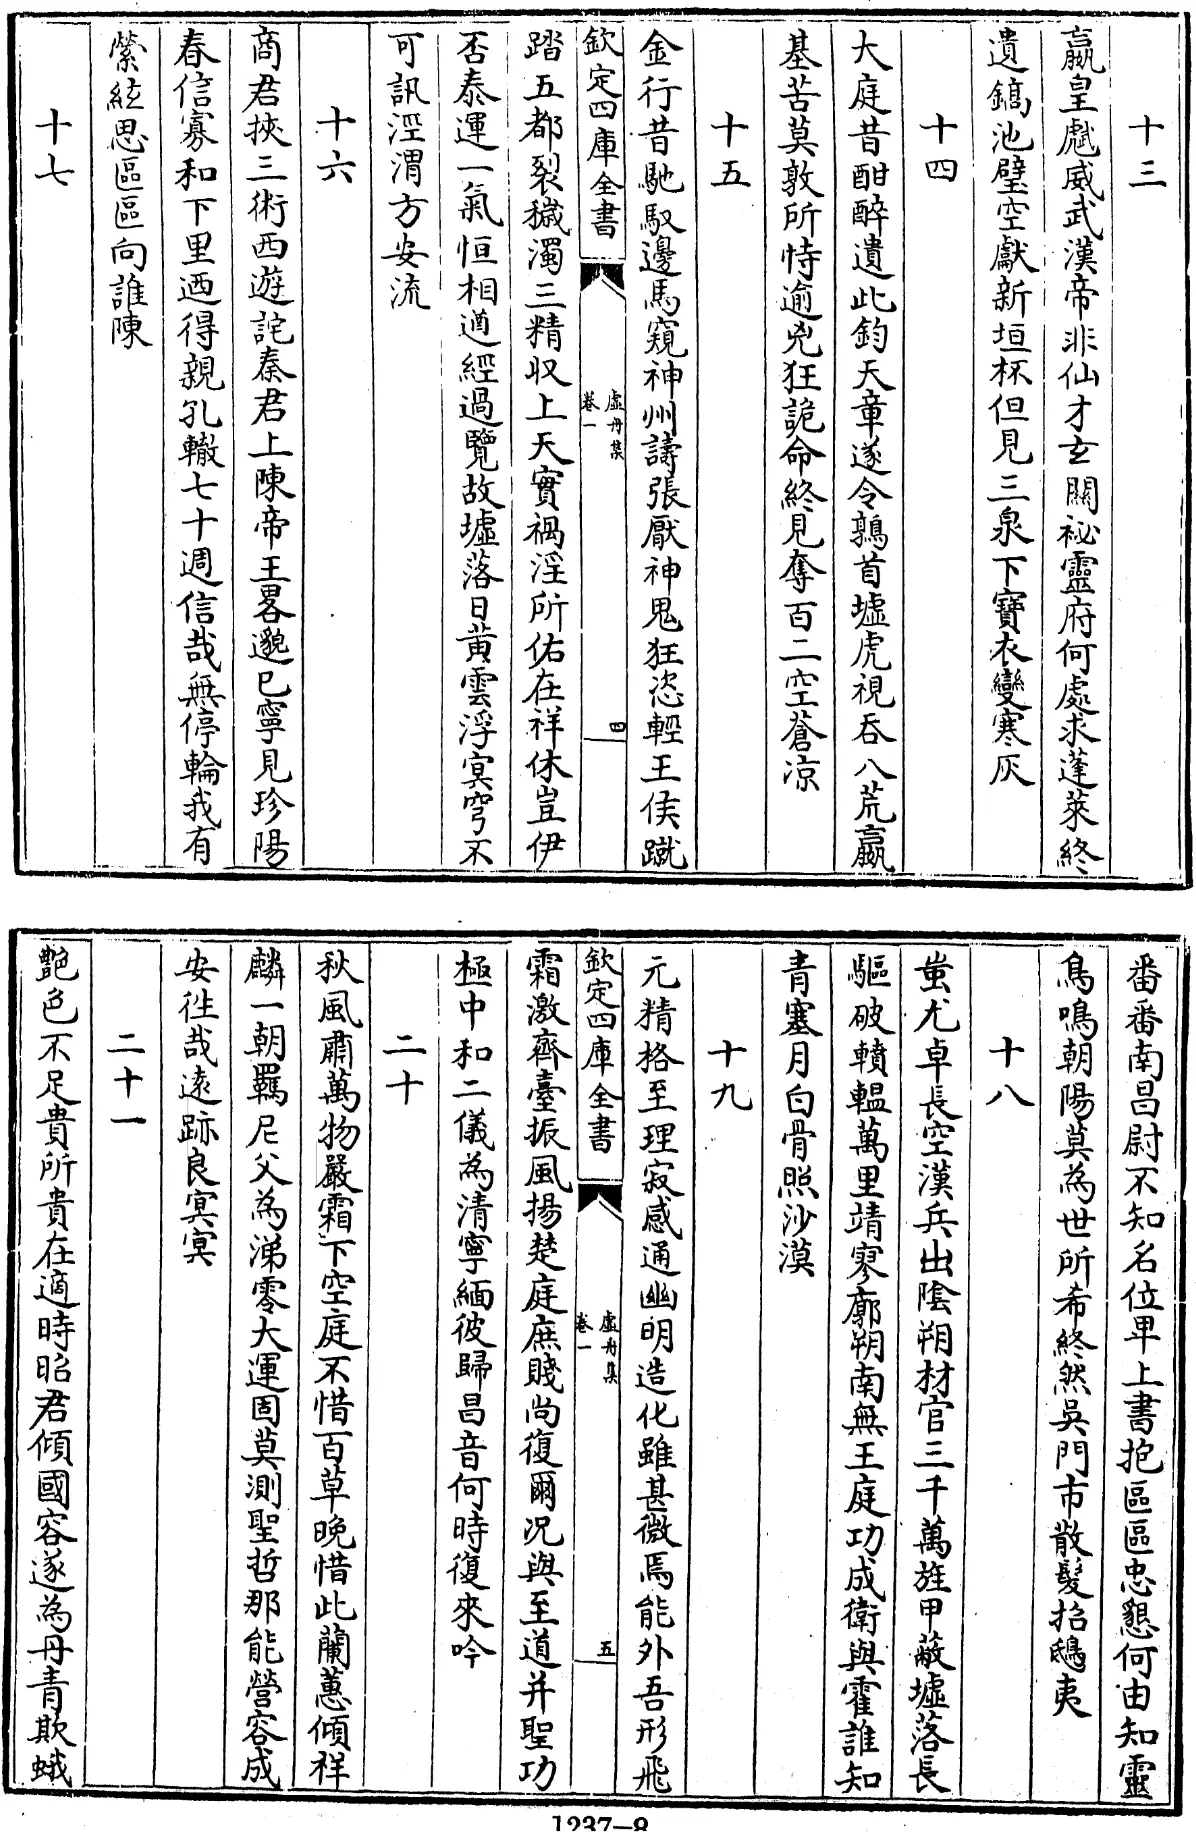 十三
嬴皇虣威武漢帝非仙才玄關祕靈府何處求蓬萊終
遺鎬池璧空獻新垣杯但見三泉下寶衣變寒灰
十四
大庭昔酣醉遺此鈞天章遂令鶉首墟虎視吞八荒嬴
基苦莫敦所恃逾兇狂詭命終見奪百二空蒼凉
十五
金行昔馳馭邊馬窺神州譸張厭神鬼狂恣輕王侯蹴
欽定四庫全書
虛舟集
卷一
四
踏五都裂穢濁三精収上天實禍淫所佑在祥休豈伊
否泰運一氣恒相遒經過覽故墟落日黄雲浮㝠穹不
可訊涇渭方安流
十六
商君挾三術西遊詫秦君上陳帝王畧邈已寧見珍陽
春信寡和下里迺得親孔轍七十週信哉無停輪我有
縈紆思區區向誰陳
十七
番番南昌尉不知名位卑上書抱區區忠懇何由知靈
鳥鳴朝陽莫為世所希終然吳門市散髮招鴟夷
十八
蚩尤卓長空漢兵出陰朔材官三千萬旌甲蔽墟落長
驅破轒輼萬里靖寥廓朔南無王庭功成衛與霍誰知
青塞月白骨照沙漠
十九
元精格至理寂感通幽明造化雖甚微焉能外吾形飛
欽定四庫全書
虛舟集
卷一
五
霜激齊臺振風揚楚庭庶賤尚復爾况與至道并聖功
極中和二儀為清寧緬彼歸昌音何時復來吟
二十
秋風肅萬物嚴霜下空庭不惜百草晚惜此蘭蕙傾祥
麟一朝羈尼父為涕零大運固莫測聖哲那能營容成
安徃哉遠跡良㝠㝠
二十一
艷色不足貴所貴在適時昭君傾國容遂為丹青欺蛾
1237-8